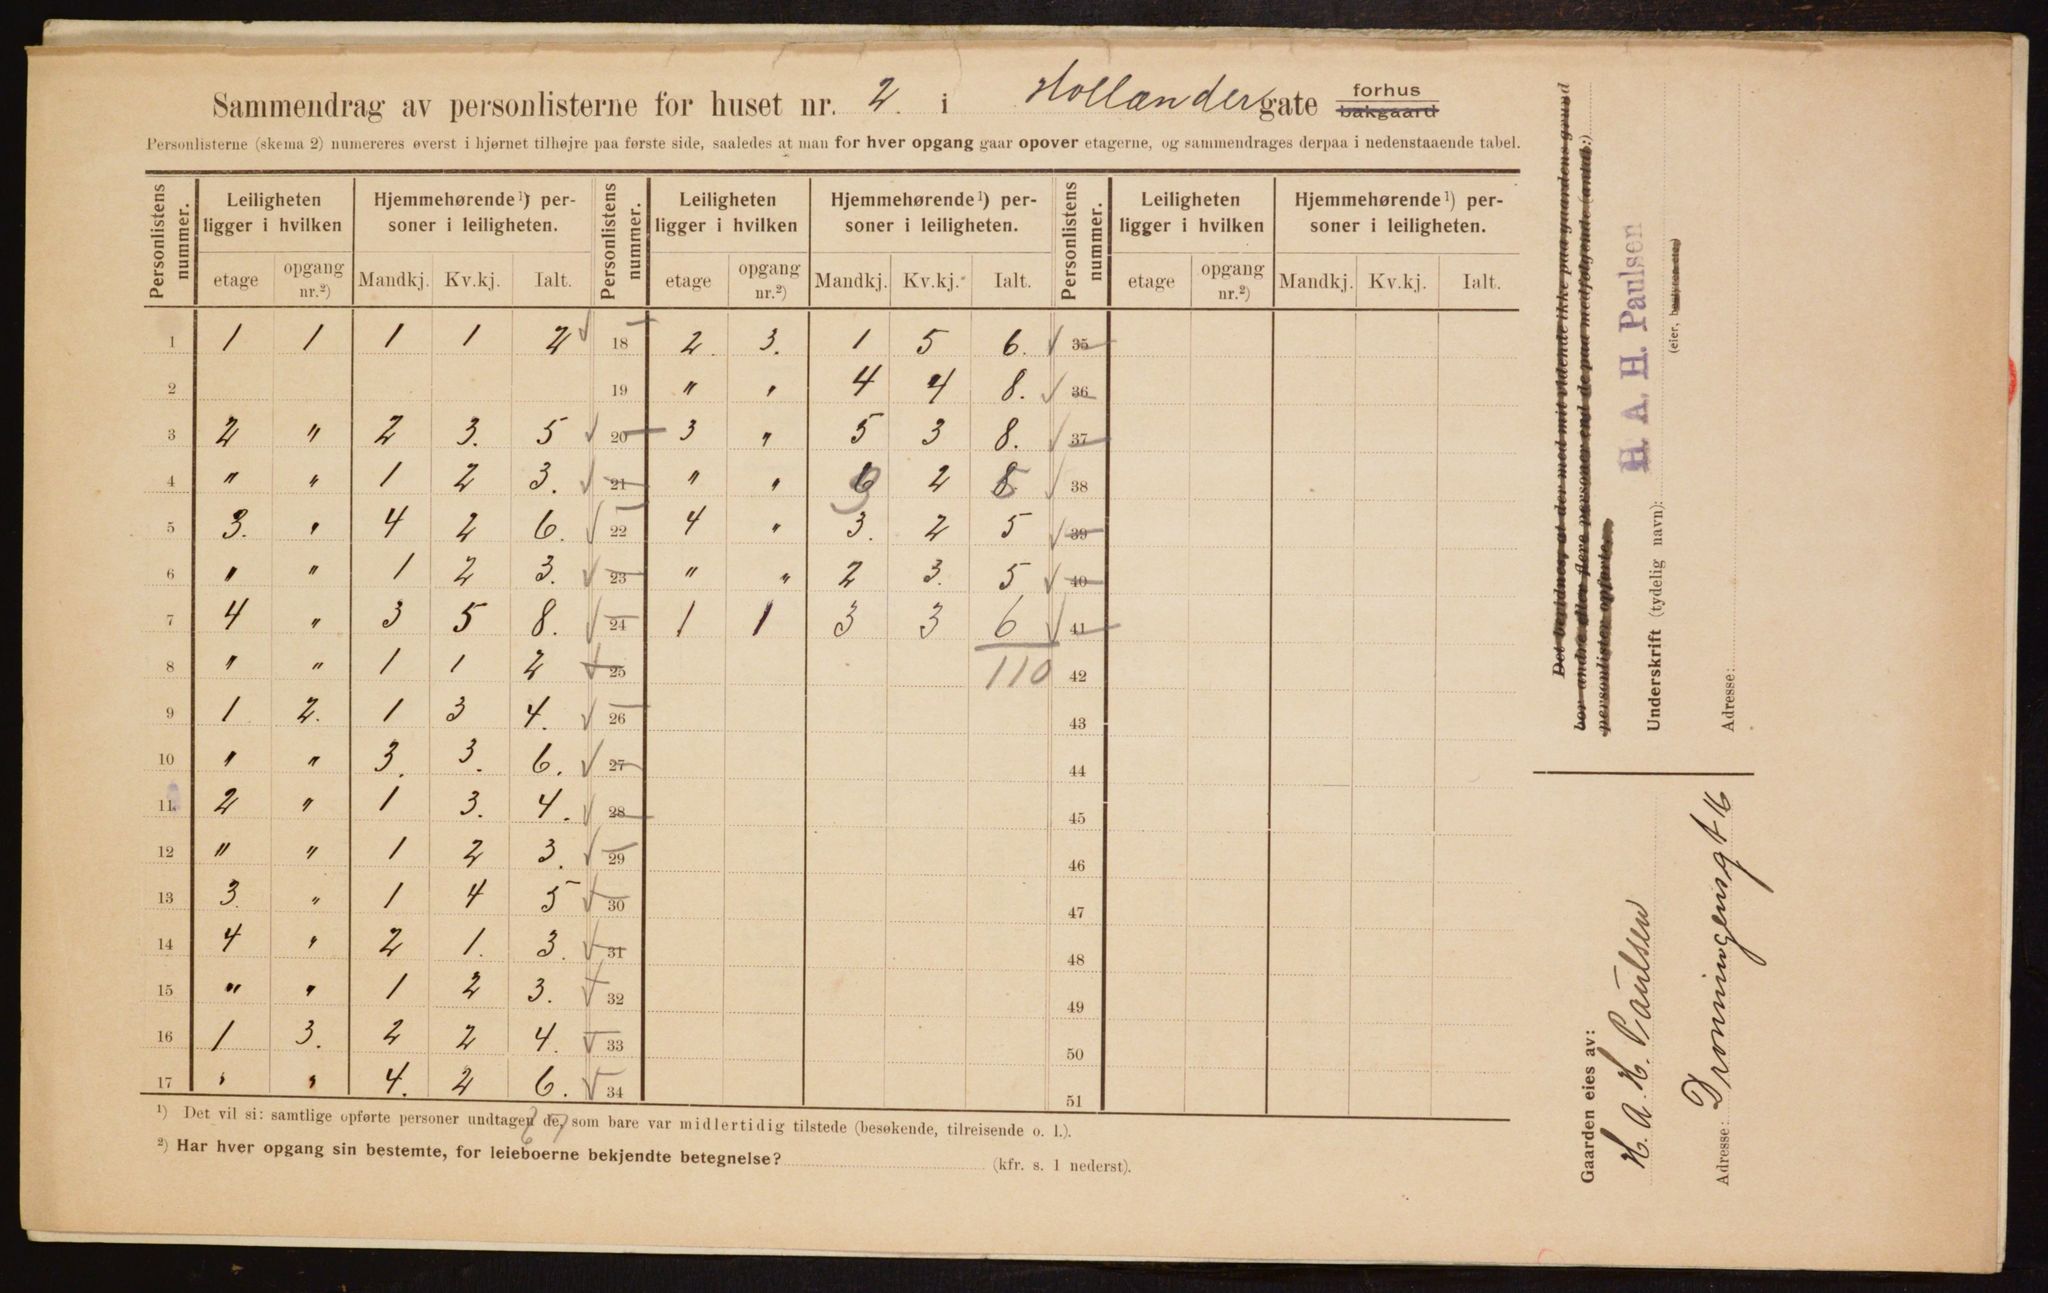 Sammendrag av personlisterne for huset nr. 2. i Hollændergate forhus bakgaard
Personlisterne (skema 2) numereres øverst i hjørnet tilhøjre paa første side, saaledes at man for hver opgang gaar opover etagerne, og sammendrages derpaa i nedenstaaende tabel.
Personlistens nummer. Leiligheten ligger i hvilken Hjemmehørende¹) personer i leiligheten. Personlistens nummer. Leiligheten ligger i hvilken Hjemmehørende¹) personer i leiligheten. Personlistens nummer. Leiligheten ligger i hvilken Hjemmehørende¹) personer i leiligheten.
etage opgang nr.²) Mandkj. Kv.kj. Ialt. etage opgang nr.²) Mandkj. Kv.kj. Ialt. etage opgang nr.²) Mandkj. Kv.kj. Ialt.
1 1 1 1 1 2 √ 18 2. 3. 1 5 6. √ 35
2 19 " " 4 4 8. √ 36
3 2 " 2 3. 5 √ 20 3 " 5 3 8. √ 37
4 " " 1 2 3. √ 21 " " 2 √ 38
5 3. " 4 2 6. √ 22 4 " 3. 2 5 √ 39
6 " " 1 2 3. √ 23 " " 2 3. 5 √ 40
7 4 " 3 5 8. √ 24 1 1 3 3 6 √ 41
8 " " 1 1 2 √ 25 110 42
9 1 2. 1 3 4. √ 26 43
10 " " 3. 3. 6. √ 27 44
11 2 " 1 3. 4. √ 28 45
12 " " 1 2 3. √ 29 46
13 3. " 1 4 5 √ 30 47
14 4 " 2 1. 3. √ 31 48
15 " " 1 2 3. √ 32 49
16 1 3. 2 2 4. √ 33 50
17 " " 4. 2 6. √ 34 51
¹) Det vil si: samtlige opførte personer undtagen de, som bare var midlertidig tilstede (besøkende, tilreisende o. l.).
67
²) Har hver opgang sin bestemte, for leieboerne bekjendte betegnelse? (kfr. s. 1 nederst).
Det bevidnes, at der med mit vidende ikke paa gaardens grund
bor andre eller flere personer end de paa medfølgende (antal:)
personlister opførte.
Underskrift (tydelig navn): H. A. H. Paulsen
(eier, bestyrer etc.)
Adresse:
Gaarden eies av:
H. A. H. Paulsen
Adresse: Dronningensgt 16